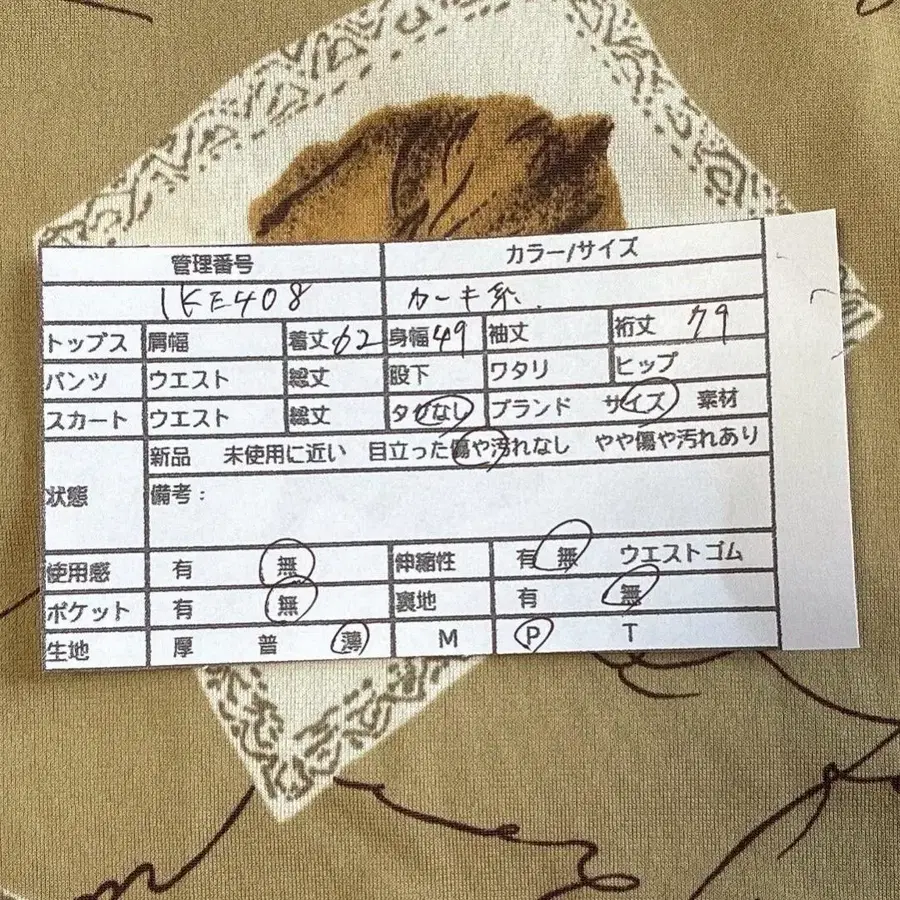 管理番号 カラー/サイズ
IKE408 カーキ系.
トップス 肩幅 着丈62 身幅49 袖丈 裄丈 79
パンツ ウエスト 総丈 股下 ワタリ ヒップ
スカート ウエスト 総丈 タグなし ブランド サイズ 素材
状態 新品 未使用に近い 目立った傷や汚れなし やや傷や汚れあり
備考：
使用感 有 無 伸縮性 有 無 ウエストゴム
ポケット 有 無 裏地 有 無
生地 厚 普 薄 M P T